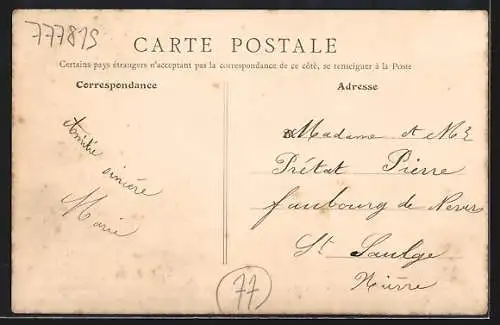 777815
CARTE POSTALE
Certains pays étrangers n'acceptant pas la correspondance de ce côté, se renseigner à la Poste
Correspondance
Adresse
Amitié
sincère
Marie
Madame et Mr
Prétat Pierre
faubourg de Nevers
St Saulge
Nièvre
77